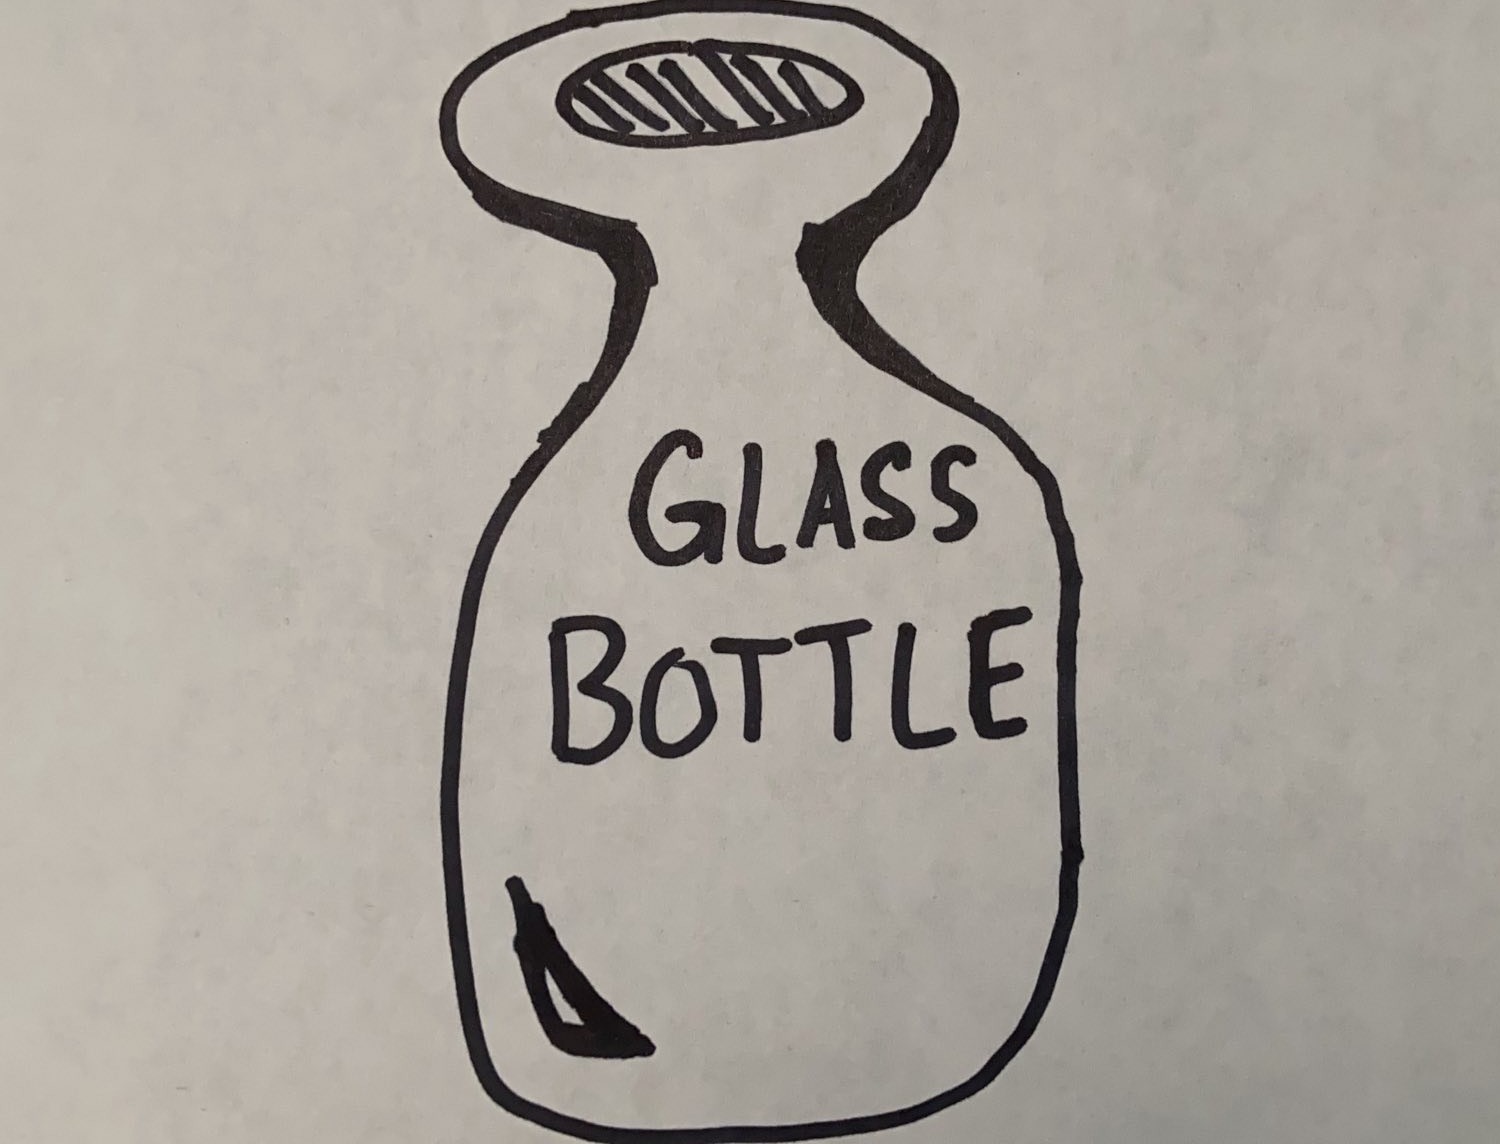 GLASS
BOTTLE